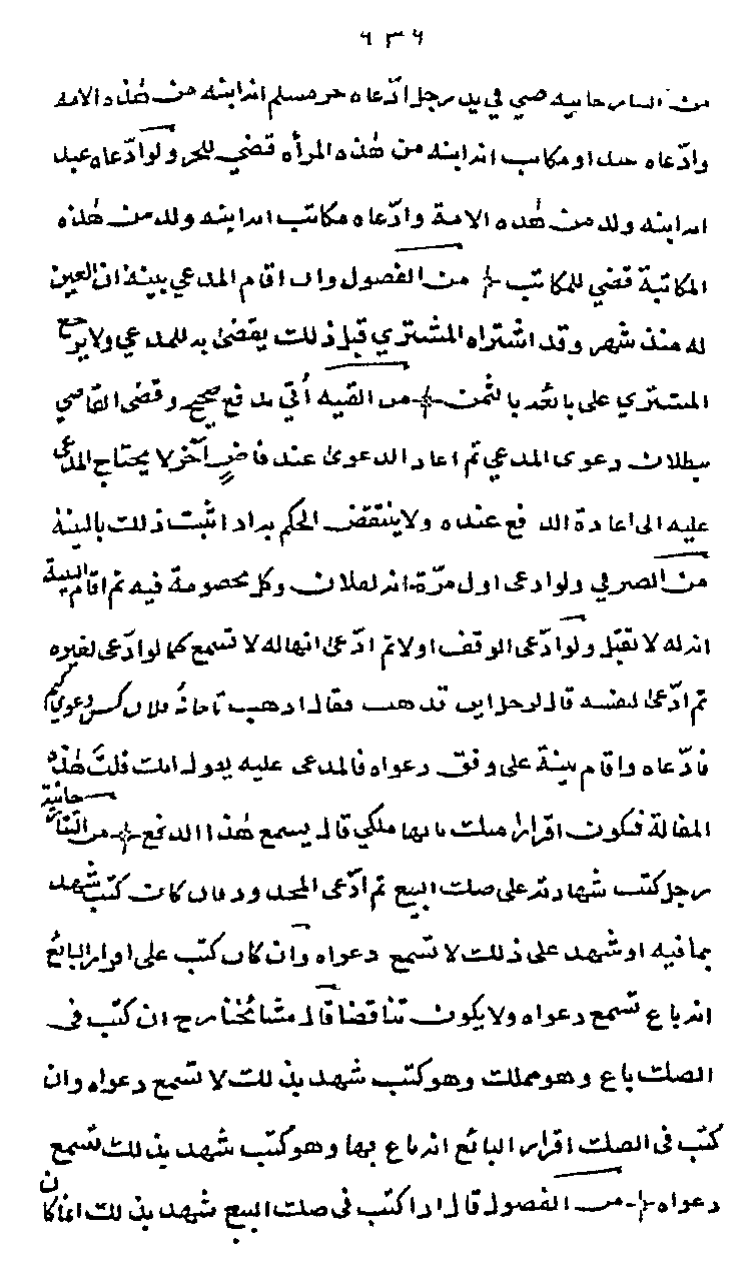 ٦٣٦
من صبي في يد رجل ادّعاه حر مسلم انه ابنه من هٰذه الامة
وادّعاه عبد او مكاتب انه ابنه من هٰذه المرأة قضي للحر ولو ادّعاه عبد
انه ابنه ولد من هٰذه الامة وادّعاه مكاتب انه ابنه ولد من هٰذه
المكاتبة قضي للمكاتب من الفصول وان اقام المدعي بينة ان العين
له منذ شهر وقد اشتراه المشتري قبل ذلك يقضى به للمدعي ولا يرجع
المشتري على بائعه بالثمن من القنية أتي بدفع صحيح وقضى القاضي
ببطلان دعوى المدعي ثم اعاد الدعوى عند قاضٍ آخر لا يحتاج المدعى
عليه الى اعادة الدفع عنده ولا ينتقض الحكم به اذا اثبت ذلك بالبينة
من الصيرفي ولو ادعى اول مرّة انه لفلان وكل بخصومة فيه ثم اقام البينة
انه له لا تقبل ولو ادّعى الوقف اولا ثم ادّعى انها له لا تسمع كما لو ادّعى لغيره
ثم ادّعى لنفسه قال لرجل اين تذهب فقال اذهب تا خانهٔ فلان كس دعوى كنم
فادّعاه واقام بينة على وفق دعواه فالمدعى عليه يقول انك قلت هٰذه
المقالة فيكون اقرارا منك بانها ملكي قال يسمع هٰذا الدفع من
رجل كتب شهادته على صك البيع ثم ادّعى المحدود فان كان كتب شهد
بما فيه او شهد على ذلك لا تسمع دعواه وان كان كتب على اقرار البائع
انه باع تسمع دعواه ولا يكون تناقضا قال مشائخنا رح ان كتب فى
الصك باع وهو يملك وهو كتب شهد بذلك لا تسمع دعواه وان
كتب فى الصك اقرار البائع انه باع بها وهو كتب شهد بذلك تسمع
دعواه من الفصول قال اذا كتب فى صك البيع شهد بذلك انما كان